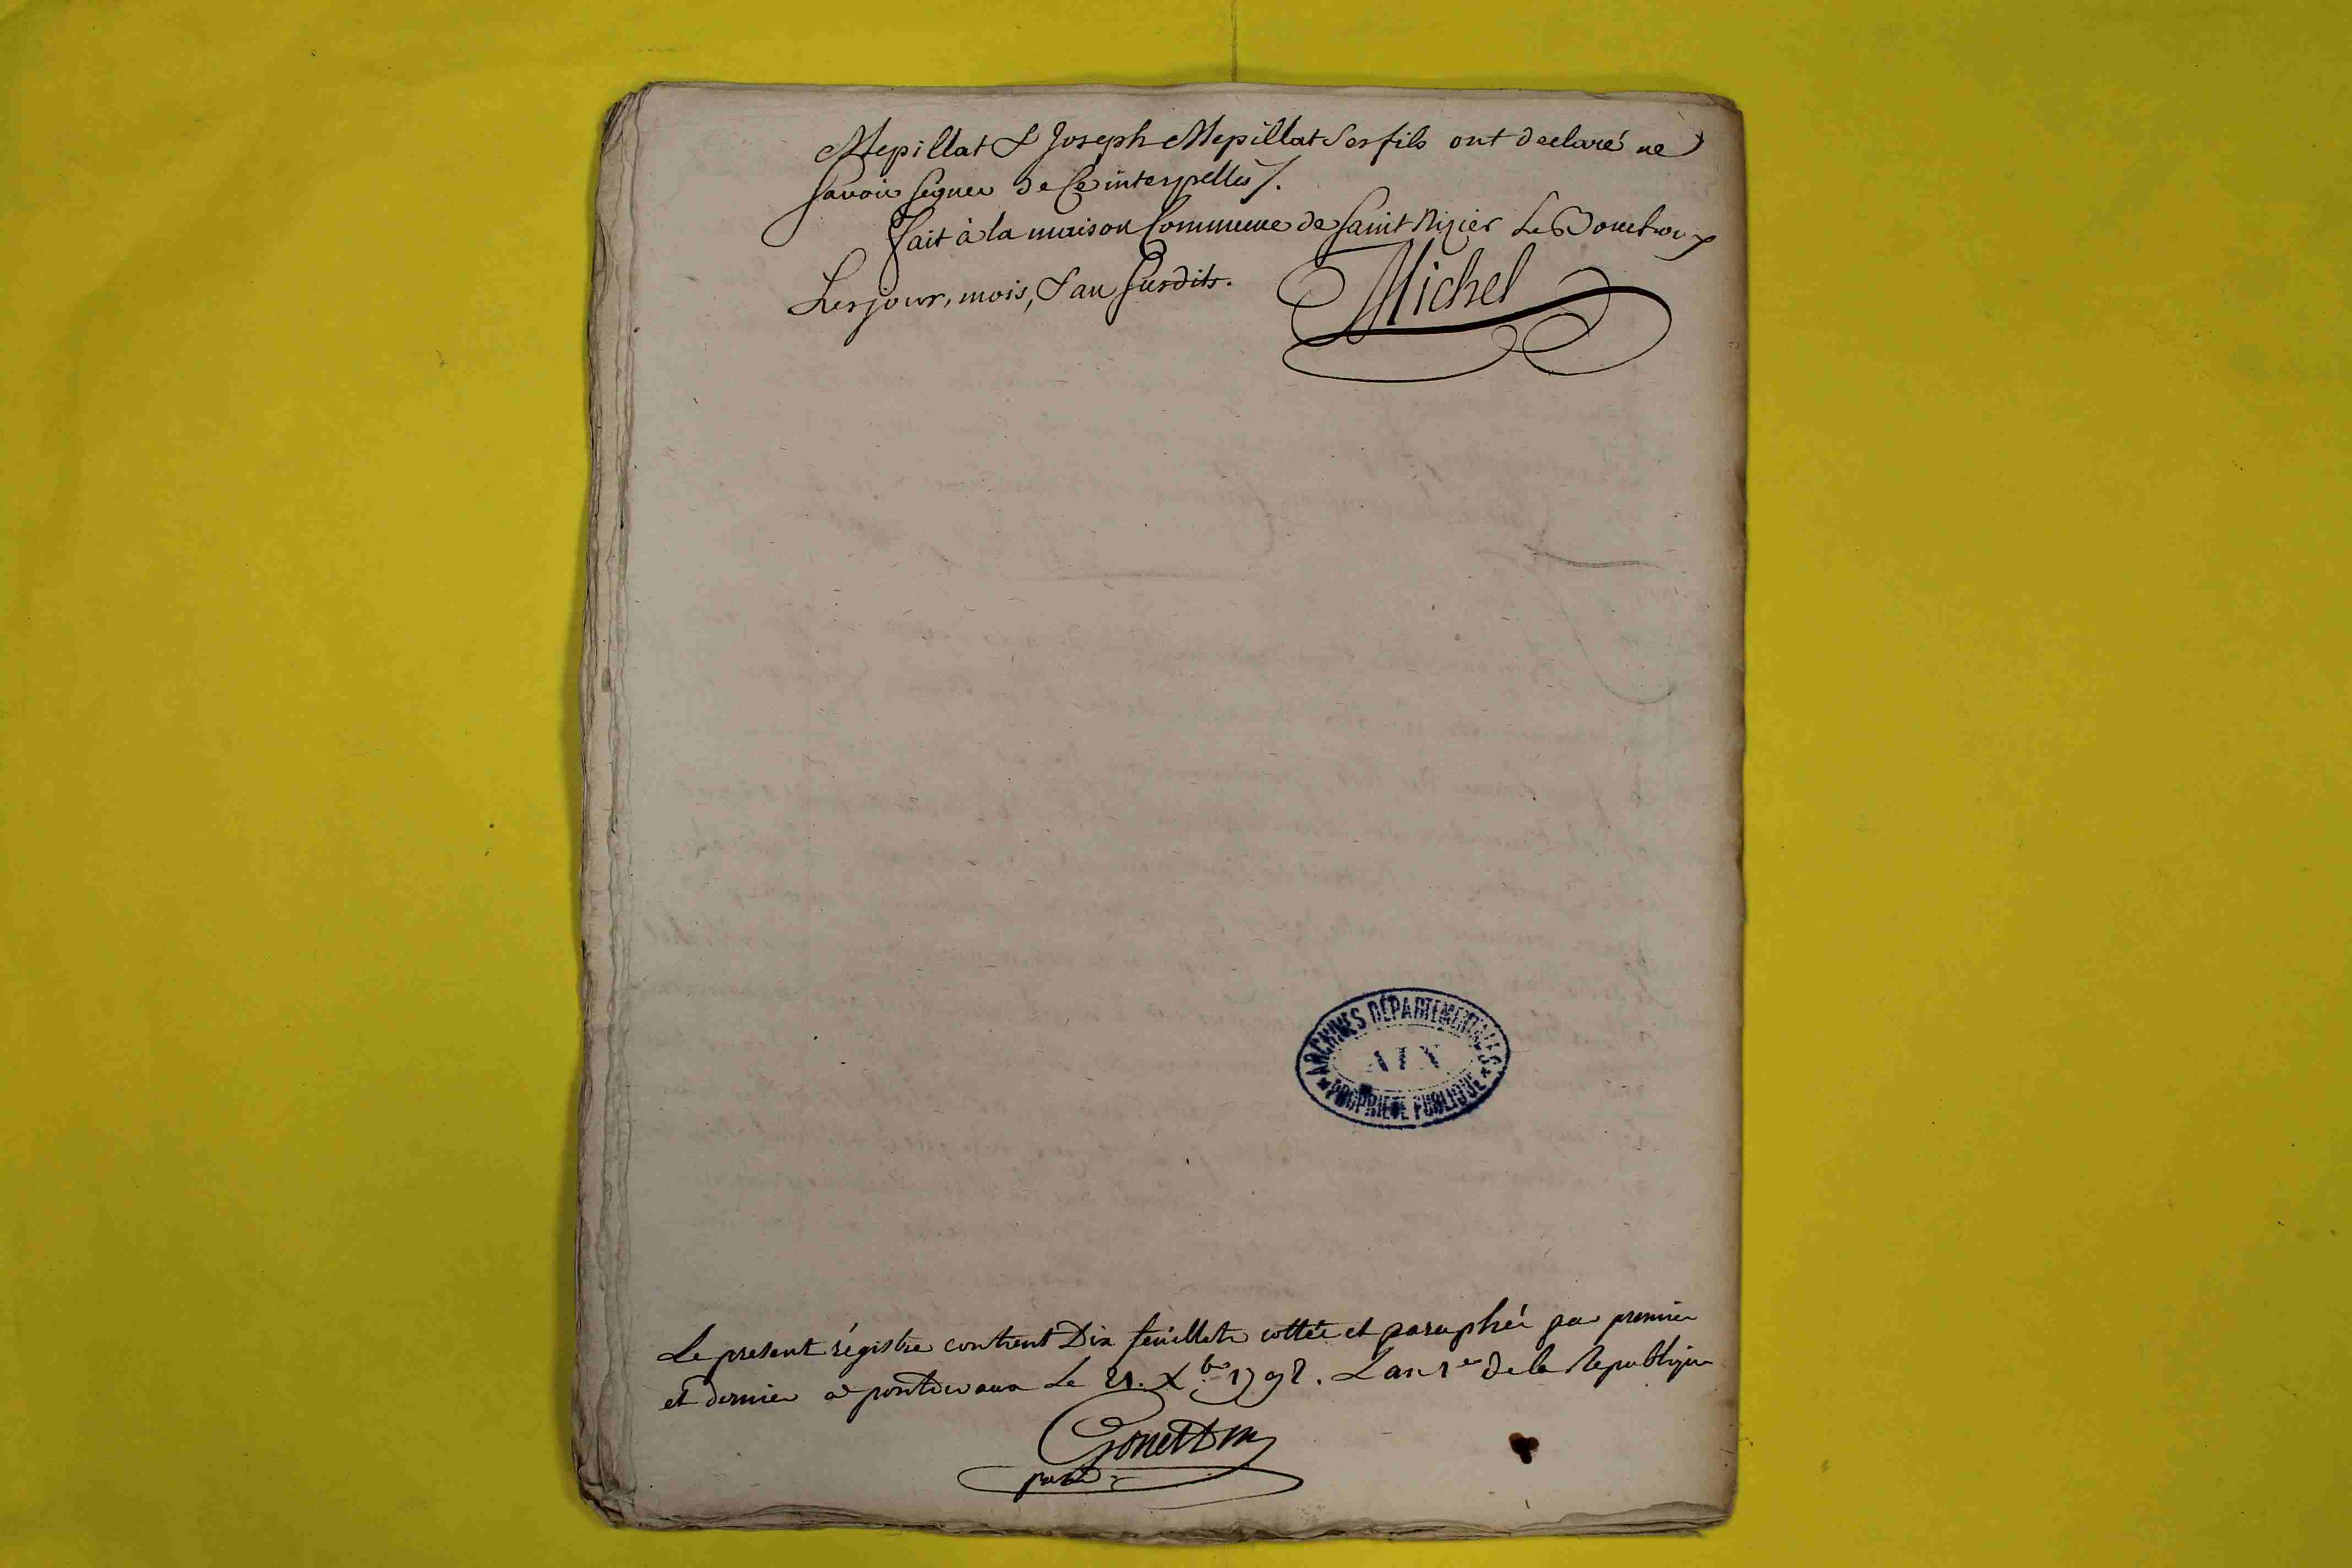 Mepillat & Joseph Mepillat Ses fils ont declaré ne
Savoir Signer de Ce interpellés /.
fait à la maison Commune de Saint Nizier Le Bouchoux
Les jour, mois, & an Susdits. Michel
ARCHIVES DÉPARTEMENTALES
AIN
PROPRIÉTÉ PUBLIQUE
Le present régistre contient Dix feuillets cottés et paraphés par premier
et dernier a pontdevaux Le 21. Xbre 1792. L an 1er de la Republique